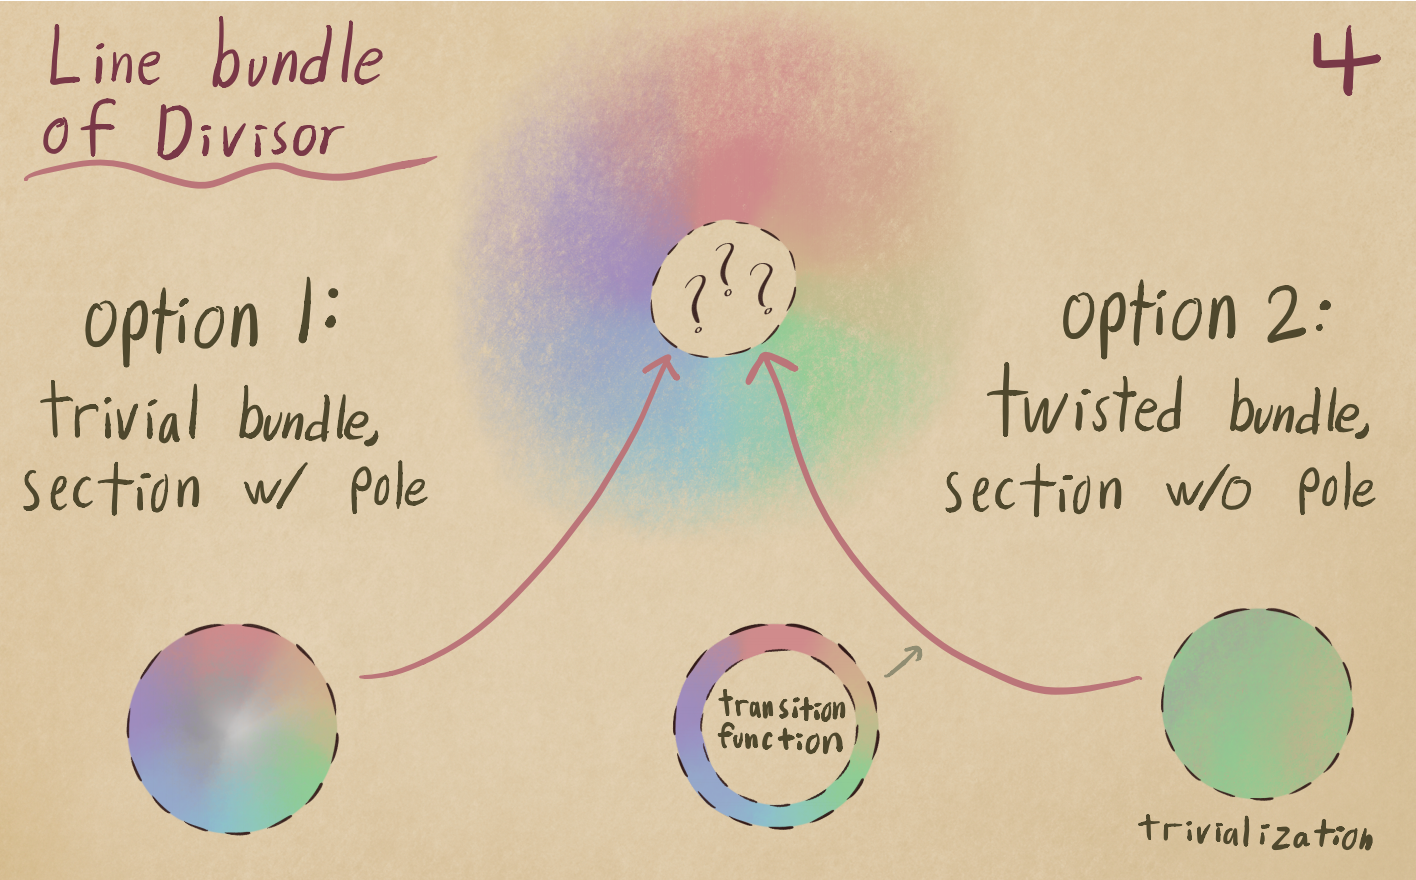 Line bundle
of Divisor
4
? ? ?
option 1:
trivial bundle,
section w/ pole
option 2:
twisted bundle,
section w/o pole
transition
function
trivialization